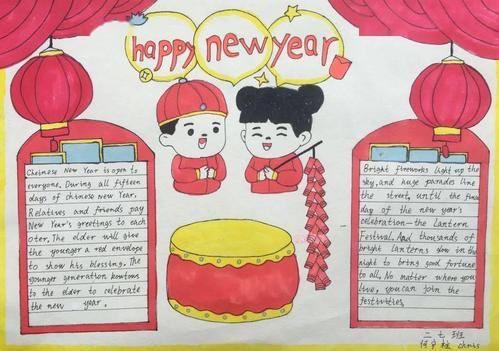 happy new year
Cheinese New Year is open to
everyone. During all fifteen
days of chinese New Year.
Relatives and friends pay
New Year's greetings to each
oter. The elder will give
the younger a red envelope
to show his blessing. The
younger generation kowtows
to the elder to celebrate
the new year.
Bright fireworks light up the
sky, and huge parades line
the street, until the final
day of the new year's
celebration—the lantern
Festival. And thousands of
bright lanterns slow in the
night to bring good fortune
to all. No matter where you
live, you can join the
festivities.
二七班
chris